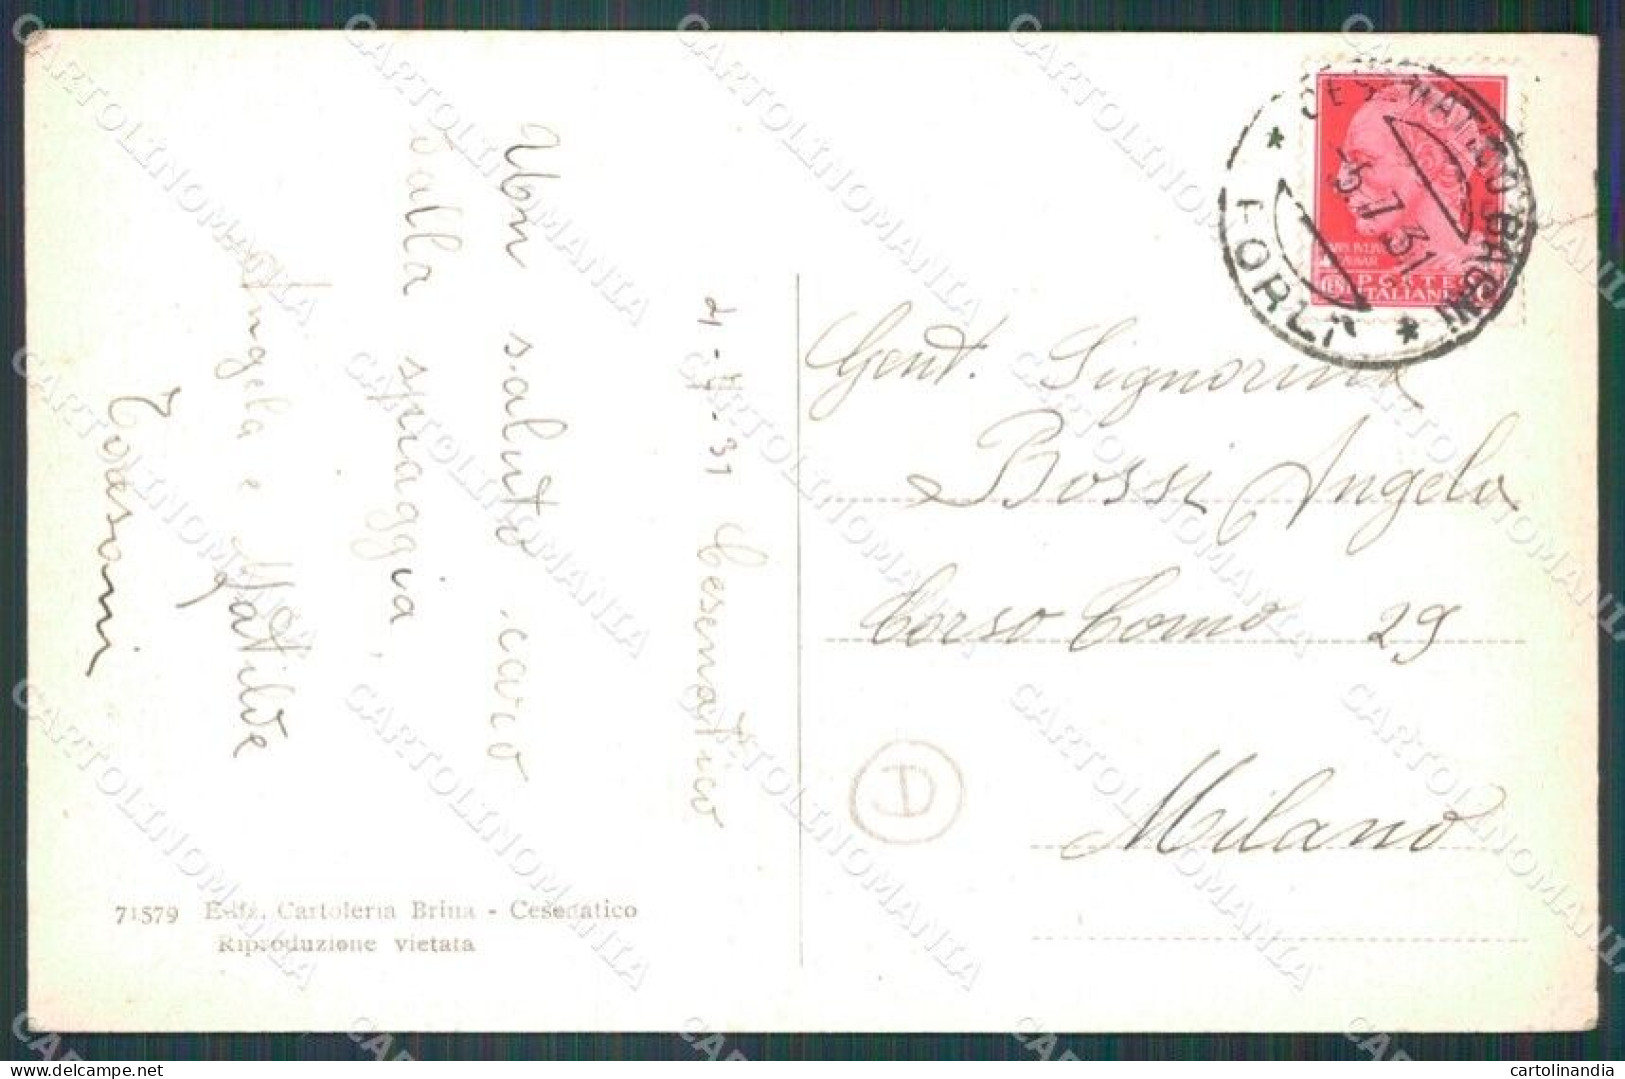 4-7-31 Cesenatico
Un saluto caro
dalla spiaggia,
Angela e Matilde
Todesani
71579 Ediz. Cartoleria Brina - Cesenatico
Riproduzione vietata
CESENATICO BAGNI
* FORLI *
-5.7.31
POSTE
ITALIANE
Gent. Signorina
Bossi Angela
Corso Como 29
Milano
D
CARTOLINOMANIA
cartolinandia